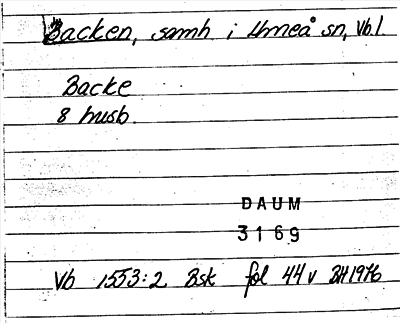 Backen, samh i Umeå sn, Vb.l.
Backe
8 husb.
DAUM
3169
Vb 1553:2 Bsk fol 44 v BH 1976